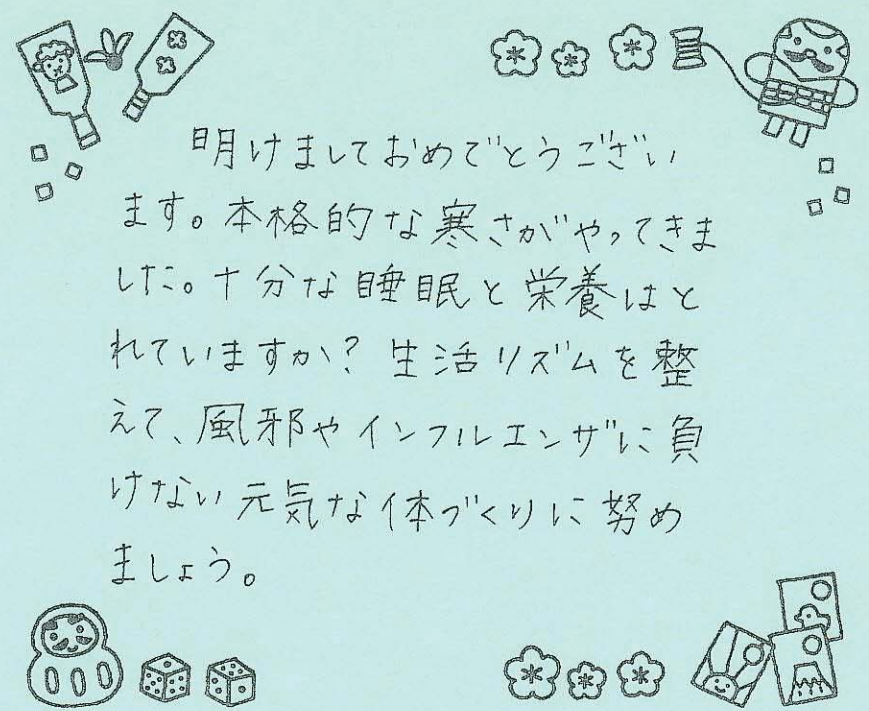 明けましておめでとうござい
ます。本格的な寒さがやってきま
した。十分な睡眠と栄養はと
れていますか？生活リズムを整
えて、風邪やインフルエンザに負
けない元気な体づくりに努め
ましょう。